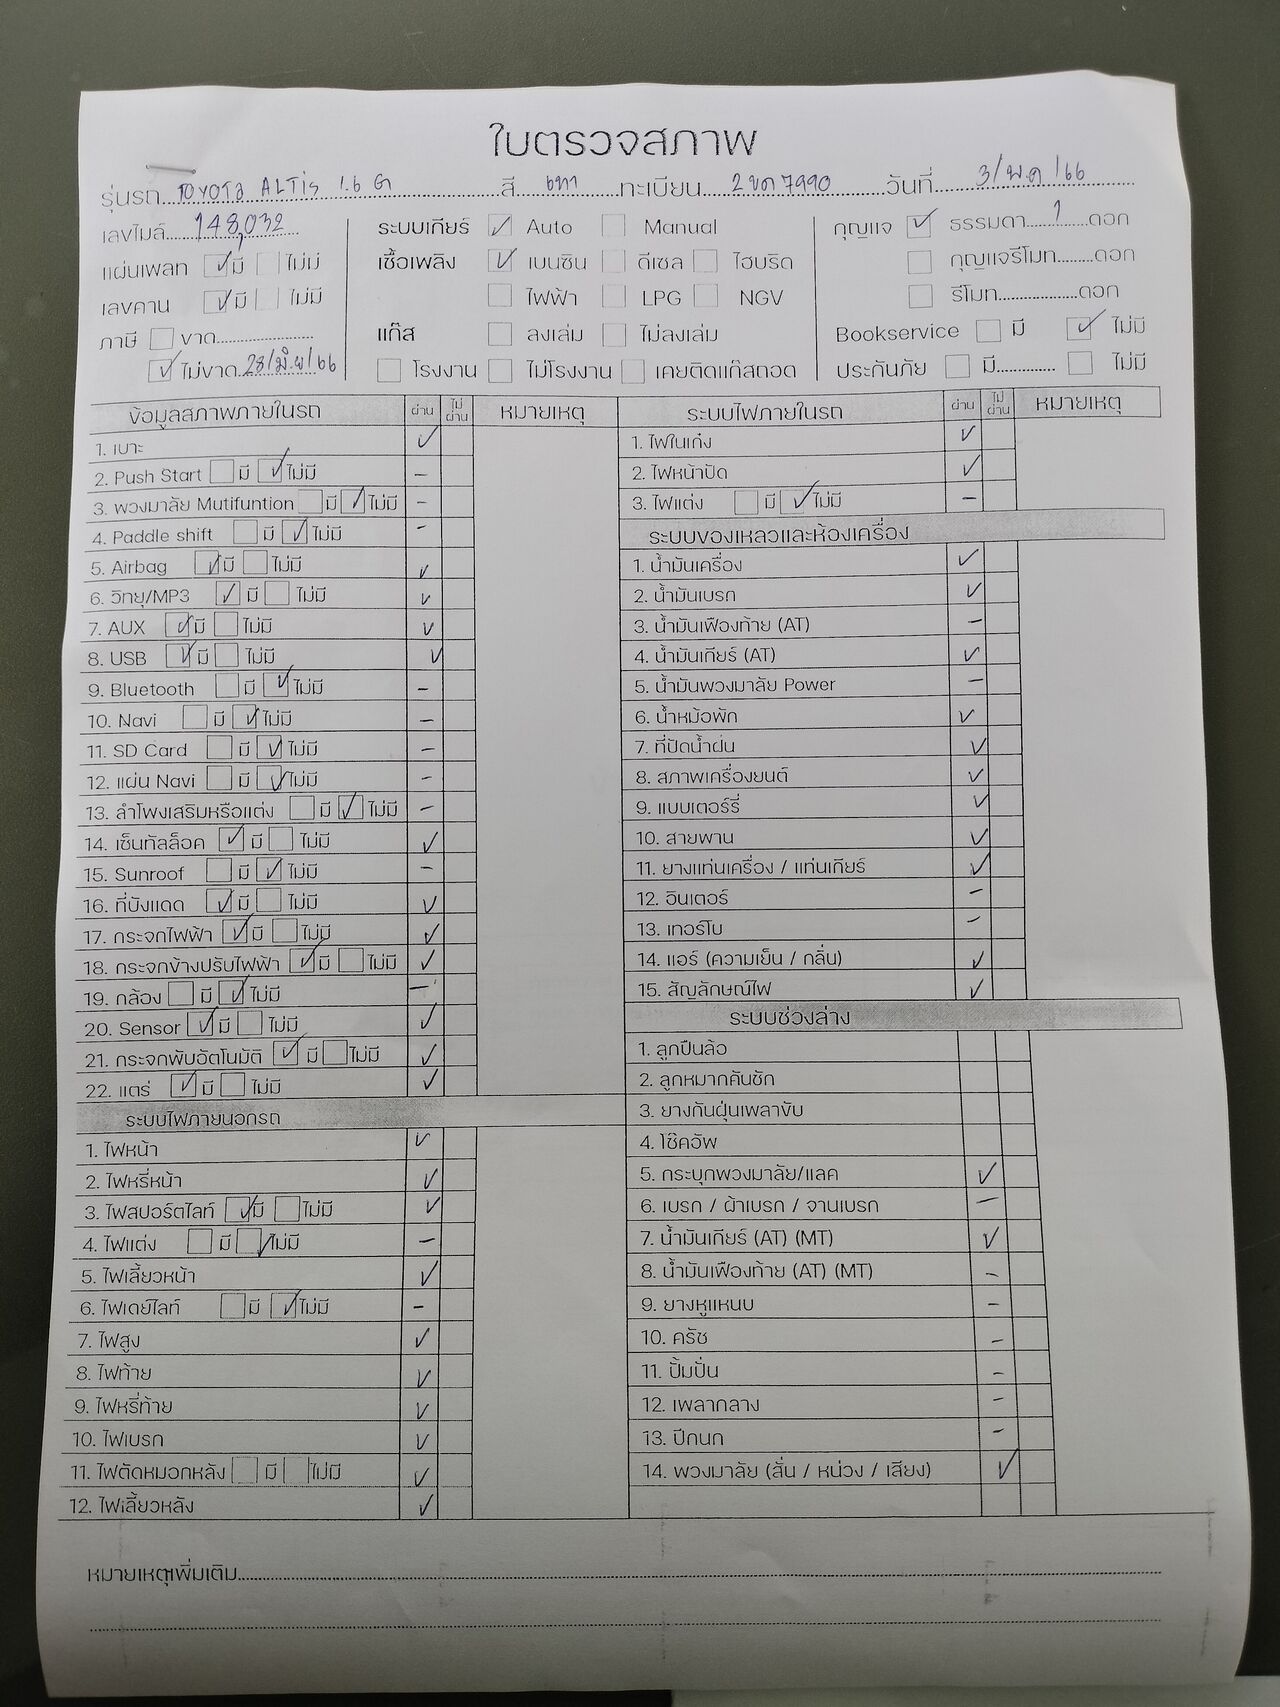 ใบตรวจสภาพ
รุ่นรถ TOYOTA ALTIS 1.6 G สี เทา ทะเบียน 2ขด7990 วันที่ 3/พ.ค/66
เลขไมล์ 148,032
แผ่นเพลท ✓ มี ☐ ไม่มี
เลขคาน ✓ มี ☐ ไม่มี
ภาษี ☐ ขาด
✓ ไม่ขาด 28/มิ.ย/66
ระบบเกียร์ ✓ Auto ☐ Manual
เชื้อเพลิง ✓ เบนซิน ☐ ดีเซล ☐ ไฮบริด
☐ ไฟฟ้า ☐ LPG ☐ NGV
แก๊ส ☐ ลงเล่ม ☐ ไม่ลงเล่ม
☐ โรงงาน ☐ ไม่โรงงาน ☐ เคยติดแก๊สถอด
กุญแจ ✓ ธรรมดา 1 ดอก
☐ กุญแจรีโมท ดอก
☐ รีโมท ดอก
Bookservice ☐ มี ✓ ไม่มี
ประกันภัย ☐ มี ☐ ไม่มี
ข้อมูลสภาพภายในรถ ผ่าน ไม่ผ่าน หมายเหตุ
1. เบาะ ✓
2. Push Start ☐ มี ✓ ไม่มี –
3. พวงมาลัย Mutifuntion ☐ มี ✓ ไม่มี –
4. Paddle shift ☐ มี ✓ ไม่มี –
5. Airbag ✓ มี ☐ ไม่มี ✓
6. วิทยุ/MP3 ✓ มี ☐ ไม่มี ✓
7. AUX ✓ มี ☐ ไม่มี ✓
8. USB ✓ มี ☐ ไม่มี ✓
9. Bluetooth ☐ มี ✓ ไม่มี –
10. Navi ☐ มี ✓ ไม่มี –
11. SD Card ☐ มี ✓ ไม่มี –
12. แผ่น Navi ☐ มี ✓ ไม่มี –
13. ลำโพงเสริมหรือแต่ง ☐ มี ✓ ไม่มี –
14. เซ็นทัลล็อค ✓ มี ☐ ไม่มี ✓
15. Sunroof ☐ มี ✓ ไม่มี –
16. ที่บังแดด ✓ มี ☐ ไม่มี ✓
17. กระจกไฟฟ้า ✓ มี ☐ ไม่มี ✓
18. กระจกข้างปรับไฟฟ้า ✓ มี ☐ ไม่มี ✓
19. กล้อง ☐ มี ✓ ไม่มี –
20. Sensor ✓ มี ☐ ไม่มี ✓
21. กระจกพับอัตโนมัติ ✓ มี ☐ ไม่มี ✓
22. แตร่ ✓ มี ☐ ไม่มี ✓
ระบบไฟภายนอกรถ
1. ไฟหน้า ✓
2. ไฟหรี่หน้า ✓
3. ไฟสปอร์ตไลท์ ✓ มี ☐ ไม่มี ✓
4. ไฟแต่ง ☐ มี ✓ ไม่มี –
5. ไฟเลี้ยวหน้า ✓
6. ไฟเดย์ไลท์ ☐ มี ✓ ไม่มี –
7. ไฟสูง ✓
8. ไฟท้าย ✓
9. ไฟหรี่ท้าย ✓
10. ไฟเบรก ✓
11. ไฟตัดหมอกหลัง ☐ มี ☐ ไม่มี ✓
12. ไฟเลี้ยวหลัง ✓
ระบบไฟภายในรถ ผ่าน ไม่ผ่าน หมายเหตุ
1. ไฟในเก๋ง ✓
2. ไฟหน้าปัด ✓
3. ไฟแต่ง ☐ มี ✓ ไม่มี –
ระบบของเหลวและห้องเครื่อง
1. น้ำมันเครื่อง ✓
2. น้ำมันเบรก ✓
3. น้ำมันเฟืองท้าย (AT) –
4. น้ำมันเกียร์ (AT) ✓
5. น้ำมันพวงมาลัย Power –
6. น้ำหม้อพัก ✓
7. ที่ปัดน้ำฝน ✓
8. สภาพเครื่องยนต์ ✓
9. แบบเตอร์รี่ ✓
10. สายพาน ✓
11. ยางแท่นเครื่อง / แท่นเกียร์ ✓
12. อินเตอร์ –
13. เทอร์โบ –
14. แอร์ (ความเย็น / กลิ่น) ✓
15. สัญลักษณ์ไฟ ✓
ระบบช่วงล่าง
1. ลูกปืนล้อ
2. ลูกหมากคันชัก
3. ยางกันฝุ่นเพลาขับ
4. โช๊คอัพ
5. กระบุกพวงมาลัย/แลค ✓
6. เบรก / ผ้าเบรก / จานเบรก –
7. น้ำมันเกียร์ (AT) (MT) ✓
8. น้ำมันเฟืองท้าย (AT) (MT) –
9. ยางหูแหนบ –
10. ครัช –
11. ปั้มปั่น –
12. เพลากลาง –
13. ปีกนก –
14. พวงมาลัย (สั่น / หน่วง / เสียง) ✓
หมายเหตุเพิ่มเติม